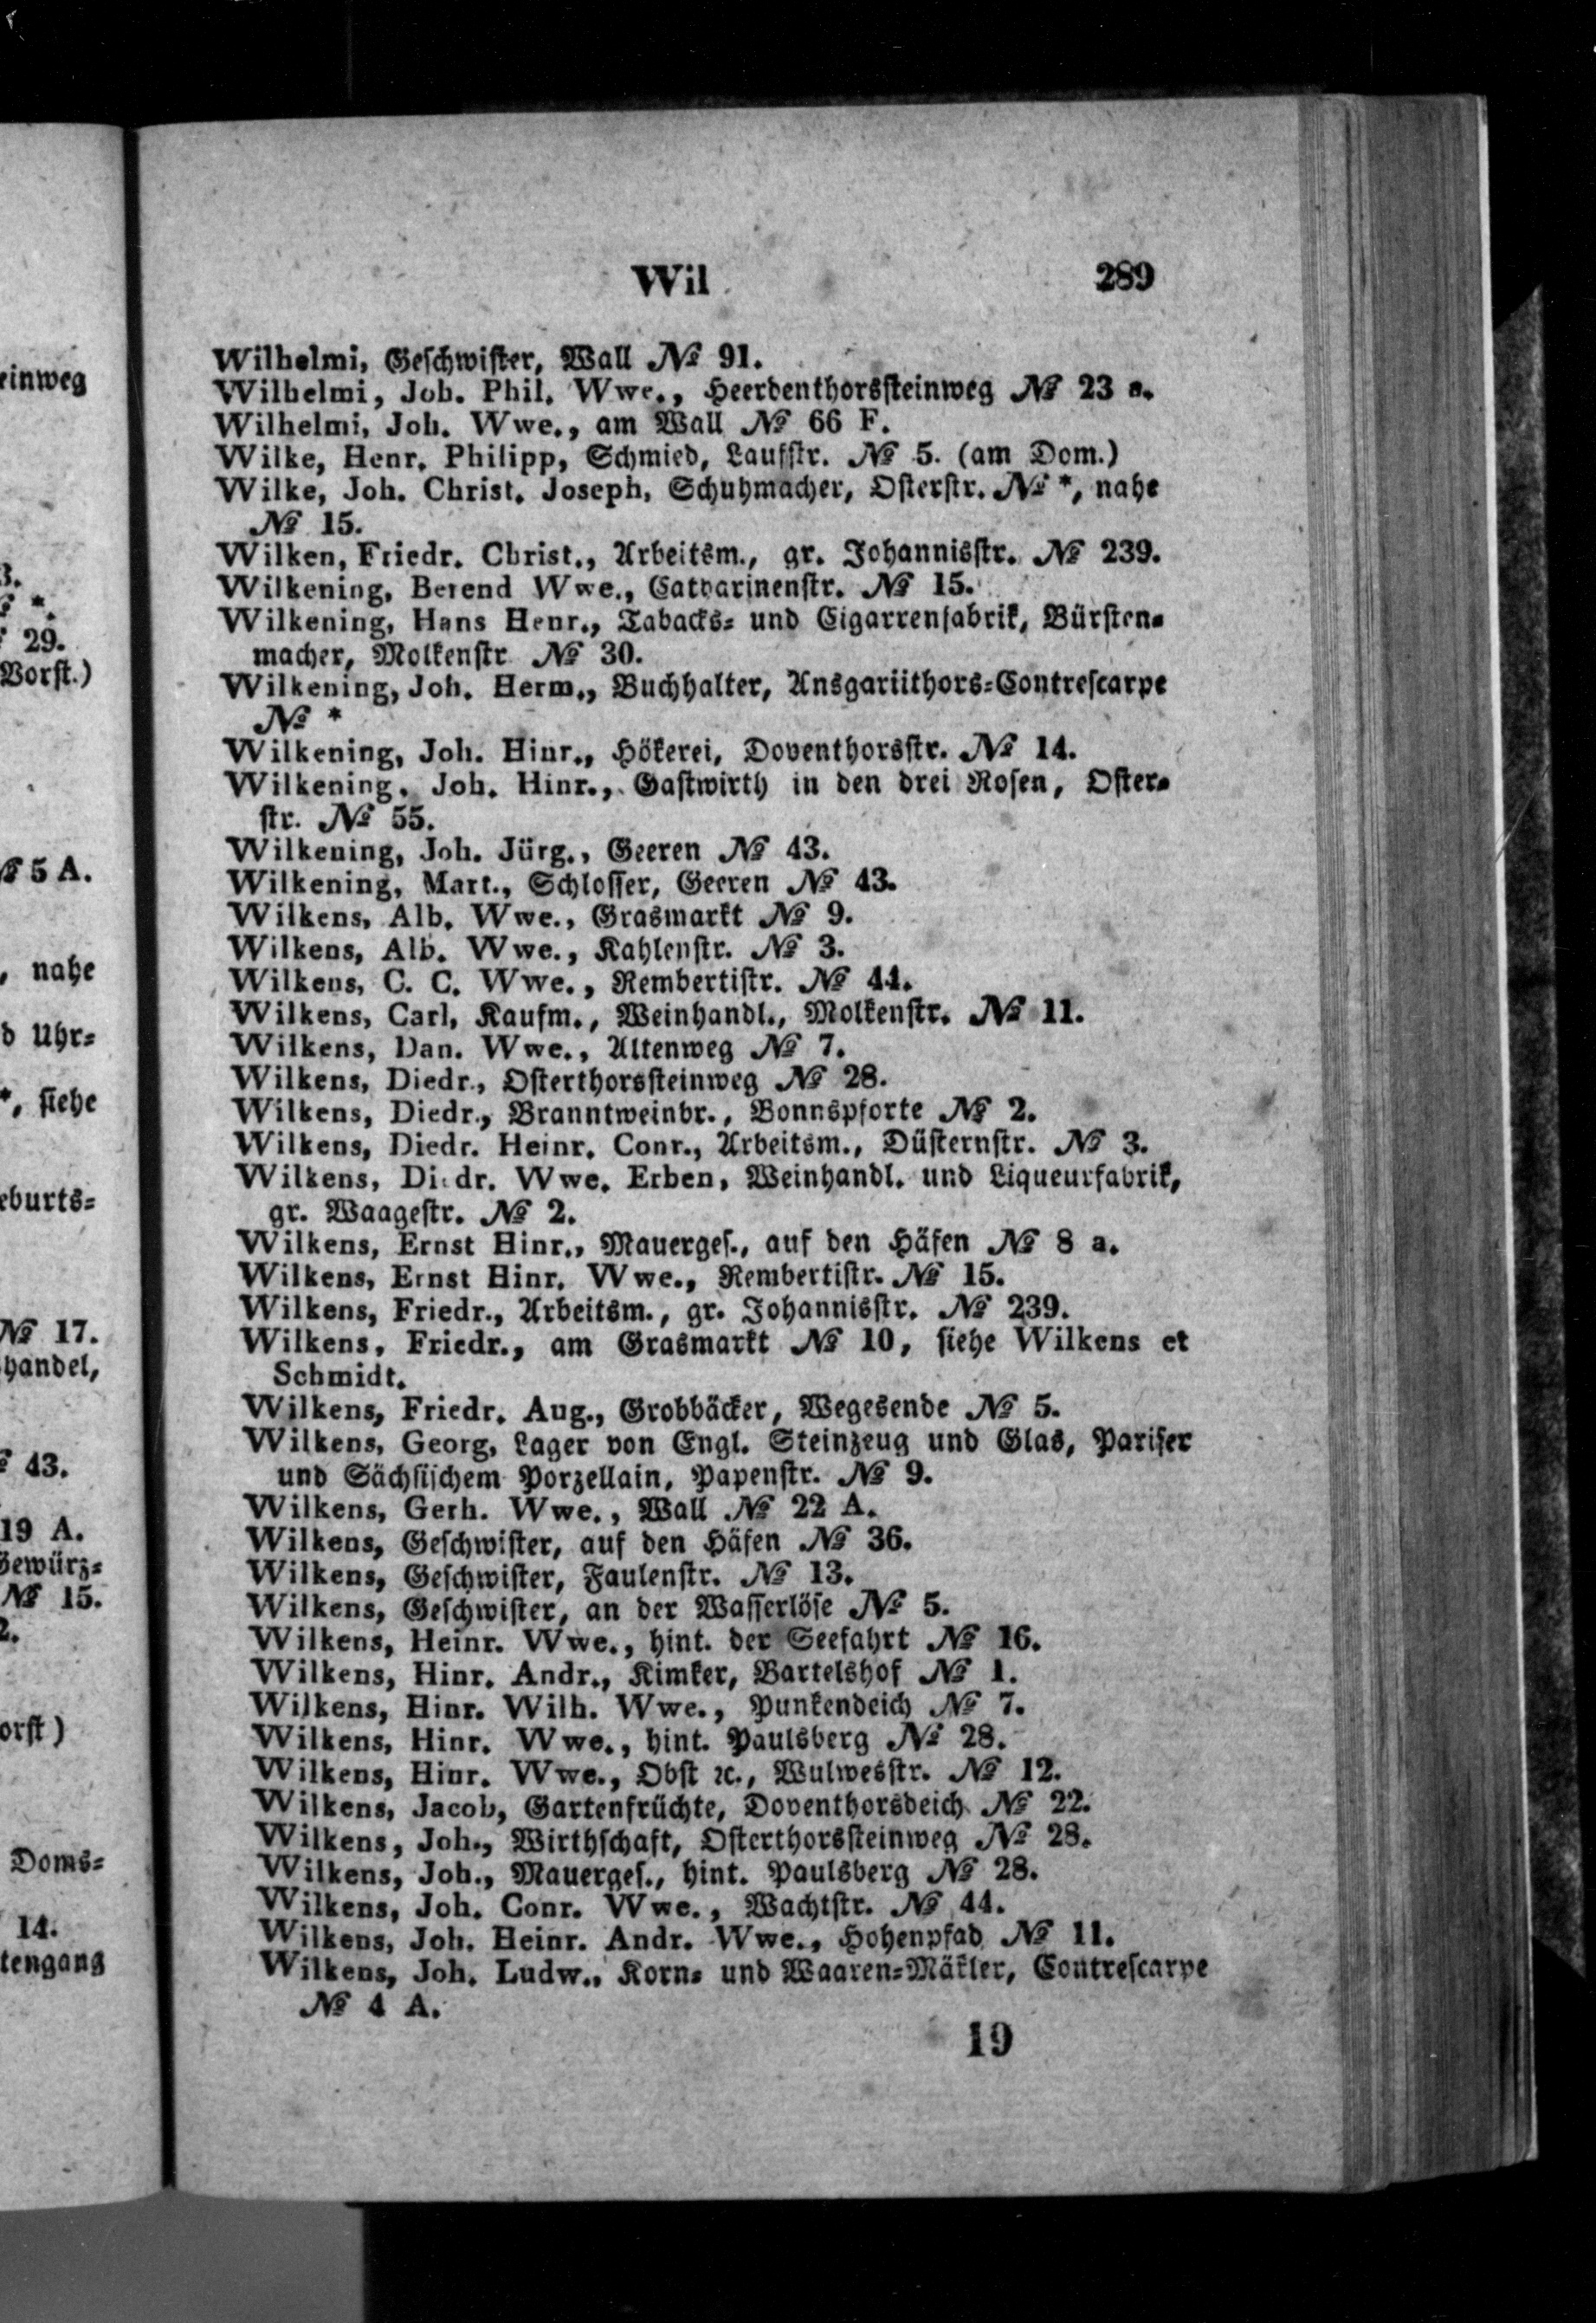 einweg
3.
№ *.
29.
Vorst.)
№ 5 A.
, nahe
d Uhr-
*, siehe
eburts-
№ 17.
handel,
43.
19 A.
Gewürz-
№ 15.
2.
orst)
Doms-
14.
tengang
Wil
289
Wilhelmi, Geschwister, Wall № 91.
Wilhelmi, Joh. Phil. Wwe., Heerdenthorssteinweg № 23 a.
Wilhelmi, Joh. Wwe., am Wall № 66 F.
Wilke, Henr. Philipp, Schmied, Laufstr. № 5. (am Dom.)
Wilke, Joh. Christ. Joseph, Schuhmacher, Osterstr. № *, nahe
№ 15.
Wilken, Friedr. Christ., Arbeitsm., gr. Johannisstr. № 239.
Wilkening, Berend Wwe., Catharinenstr. № 15.
Wilkening, Hans Henr., Tabacks- und Cigarrenfabrik, Bürsten-
macher, Molkenstr № 30.
Wilkening, Joh. Herm., Buchhalter, Ansgariithors-Contrescarpe
№ *
Wilkening, Joh. Hinr., Hökerei, Doventhorsstr. № 14.
Wilkening, Joh. Hinr., Gastwirth in den drei Rosen, Oster-
str. № 55.
Wilkening, Joh. Jürg., Geeren № 43.
Wilkening, Mart., Schlosser, Geeren № 43.
Wilkens, Alb. Wwe., Grasmarkt № 9.
Wilkens, Alb. Wwe., Kahlenstr. № 3.
Wilkens, C. C. Wwe., Rembertistr. № 44.
Wilkens, Carl, Kaufm., Weinhandl., Molkenstr. № 11.
Wilkens, Dan. Wwe., Altenweg № 7.
Wilkens, Diedr., Osterthorssteinweg № 28.
Wilkens, Diedr., Branntweinbr., Bonnspforte № 2.
Wilkens, Diedr. Heinr. Conr., Arbeitsm., Düsternstr. № 3.
Wilkens, Diedr. Wwe. Erben, Weinhandl. und Liqueurfabrik,
gr. Waagestr. № 2.
Wilkens, Ernst Hinr., Mauerges., auf den Häfen № 8 a.
Wilkens, Ernst Hinr. Wwe., Rembertistr. № 15.
Wilkens, Friedr., Arbeitsm., gr. Johannisstr. № 239.
Wilkens, Friedr., am Grasmarkt № 10, siehe Wilkens et
Schmidt.
Wilkens, Friedr. Aug., Grobbäcker, Wegesende № 5.
Wilkens, Georg, Lager von Engl. Steinzeug und Glas, Pariser
und Sächsischem Porzellain, Papenstr. № 9.
Wilkens, Gerh. Wwe., Wall № 22 A.
Wilkens, Geschwister, auf den Häfen № 36.
Wilkens, Geschwister, Faulenstr. № 13.
Wilkens, Geschwister, an der Wasserlöse № 5.
Wilkens, Heinr. Wwe., hint. der Seefahrt № 16.
Wilkens, Hinr. Andr., Kimker, Bartelshof № 1.
Wilkens, Hinr. Wilh. Wwe., Punkendeich № 7.
Wilkens, Hinr. Wwe., hint. Paulsberg № 28.
Wilkens, Hinr. Wwe., Obst ꝛc., Wulwesstr. № 12.
Wilkens, Jacob, Gartenfrüchte, Doventhorsdeich № 22.
Wilkens, Joh., Wirthschaft, Osterthorssteinweg № 28.
Wilkens, Joh., Mauerges., hint. Paulsberg № 28.
Wilkens, Joh. Conr. Wwe., Wachtstr. № 44.
Wilkens, Joh. Heinr. Andr. Wwe., Hohenpfad № 11.
Wilkens, Joh. Ludw., Korn- und Waaren-Mäkler, Contrescarpe
№ 4 A.
19